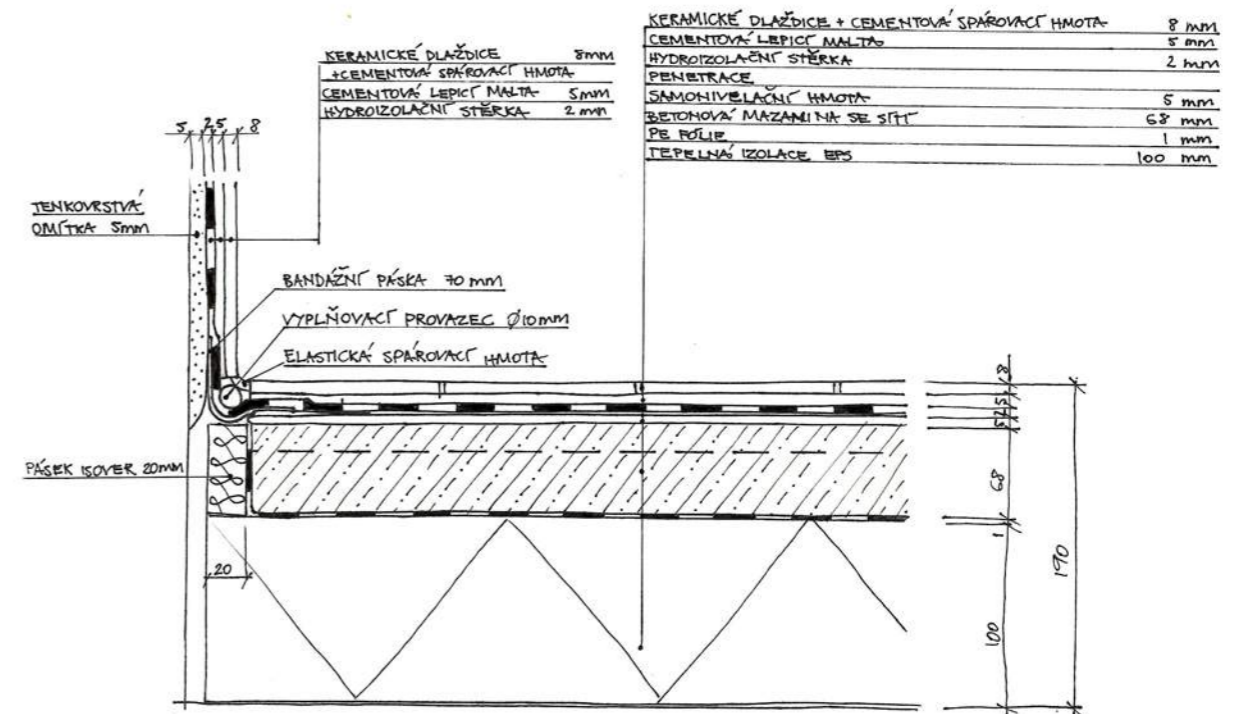 KERAMICKÉ DLAŽDICE + CEMENTOVÁ SPÁROVACÍ HMOTA 8 mm
CEMENTOVÁ LEPICÍ MALTA 5 mm
HYDROIZOLAČNÍ STĚRKA 2 mm
PENETRACE
SAMONIVELAČNÍ HMOTA 5 mm
BETONOVÁ MAZANINA SE SÍTÍ 68 mm
PE FOLIE 1 mm
TEPELNÁ IZOLACE EPS 100 mm
KERAMICKÉ DLAŽDICE 8mm
+CEMENTOVÁ SPÁROVACÍ HMOTA
CEMENTOVÁ LEPICÍ MALTA 5mm
HYDROIZOLAČNÍ STĚRKA 2 mm
5 2 5 8
TENKOVRSTVÁ
OMÍTKA 5mm
BANDÁŽNÍ PÁSKA 70 mm
VYPLŇOVACÍ PROVAZEC Ø10mm
ELASTICKÁ SPÁROVACÍ HMOTA
PÁSEK ISOVER 20mm
20
8
5
2
5
68
1
100
190